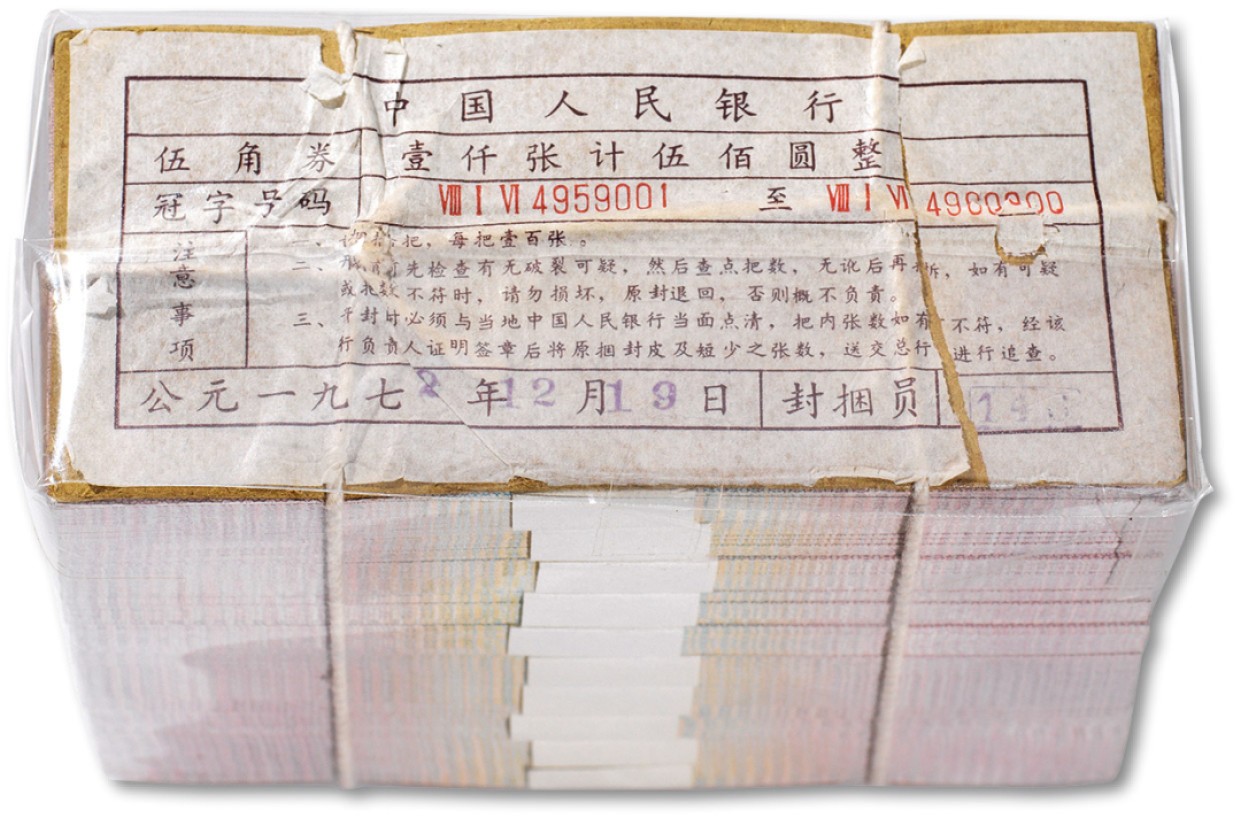 中国人民银行
伍角券 壹仟张计伍佰圆整
冠字号码 ⅧⅠⅥ4959001 至 ⅧⅠⅥ
注意事项
把，每把壹百张。
二、先检查有无破裂可疑，然后查点把数，无讹后再拆，如有可疑
或把数不符时，请勿损坏，原封退回，否则概不负责。
三、开封时必须与当地中国人民银行当面点清，把内张数如有不符，经该
行负责人证明签章后将原捆封皮及短少之张数，送交总行进行追查。
公元一九七2年12月19日 封捆员